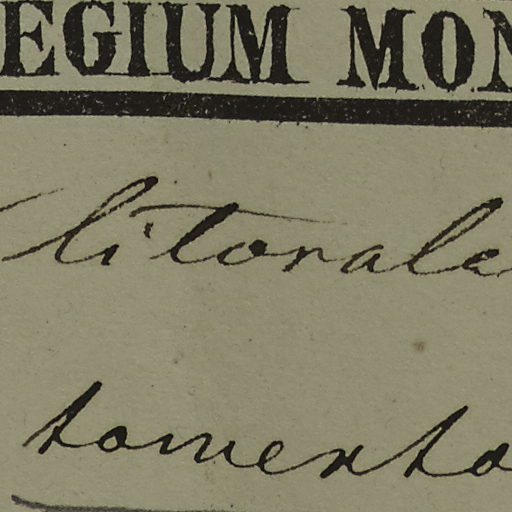 EGIUM MON
litorale
tomento